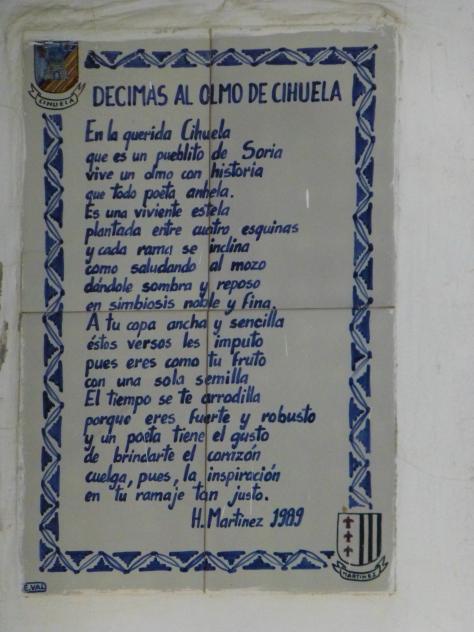 CIHUELA
DECIMAS AL OLMO DE CIHUELA
En la querida Cihuela
que es un pueblito de Soria
vive un olmo con historia
que todo poeta anhela.
Es una viviente estela
plantada entre cuatro esquinas
y cada rama se inclina
como saludando al mozo
dándole sombra y reposo
en simbiosis noble y fina.
A tu copa ancha y sencilla
éstos versos les imputo
pues eres como tu fruto
con una sola semilla
El tiempo se te arrodilla
porque eres fuerte y robusto
y un poeta tiene el gusto
de brindarte el corazón
cuelga, pues, la inspiración
en tu ramaje tan justo.
H. Martinez 1989
MARTINEZ
E.VAL